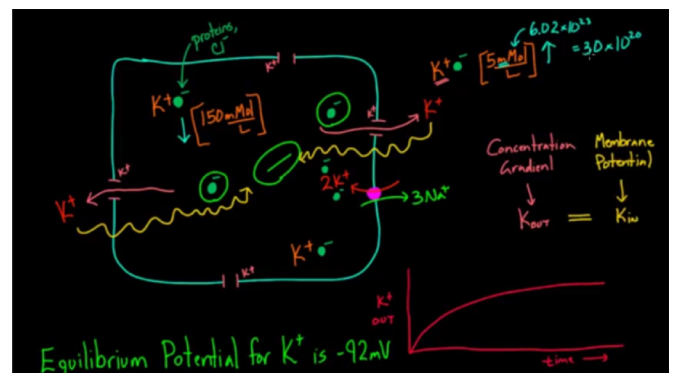 proteins,
Cl⁻
K⁺
[150 mMol/L]
K⁺
K⁺
K⁺
K⁺
K⁺
K⁺
2K⁺
3Na⁺
K⁺
K⁺
K⁺ [5 mMol/L] ↑
6.02×10²³
=3.0×10²⁰
Concentration Gradient
Membrane Potential
K OUT = K IN
K⁺ OUT
time →
Equilibrium Potential for K⁺ is -92mV